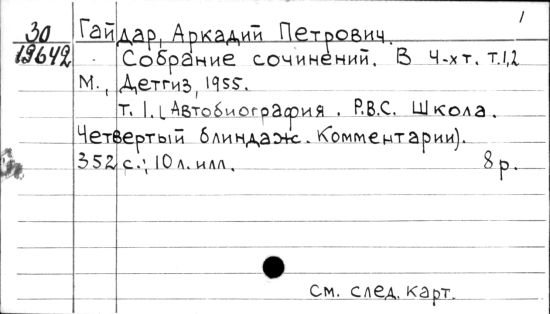 1
30 Гайдар, Аркадий Петрович.
19642 Собрание сочинений. В 4-х т. т.1,2
М., Детгиз, 1955.
т. 1. (Автобиография. Р.В.С. Школа.
Четвертый блиндаж. Комментарии).
352 с.; 10 л. илл. 8 р.
см. след. карт.